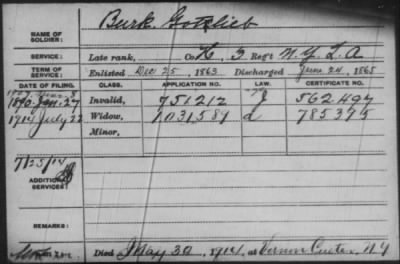 Burk Gottlieb
NAME OF SOLDIER:
SERVICE: Late rank, Co K, 3 Regt N.Y. L. A
TERM OF SERVICE: Enlisted Dec 25, 1863 Discharged June 24, 1865
DATE OF FILING. CLASS. APPLICATION NO. LAW. CERTIFICATE NO.
1890 Jan. 27 Invalid, 751.212 562.497
1914 July 22 Widow, 1031589 785395
Minor,
7/25/14
ADDITIONAL SERVICES:
REMARKS:
Died May 30, 1914, at Vernon Center, N.Y